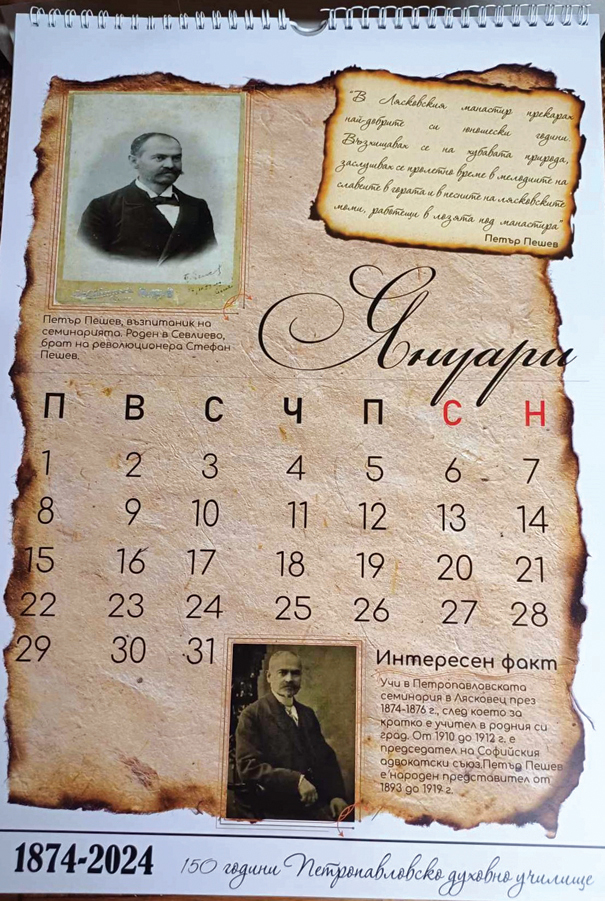 "В Лясковския манастир прекарах
най-добрите си юношески години.
Възхищавах се на хубавата природа,
заслушвах се пролетно време в мелодиите на
славеите в гората и в песните на лясковските
моми, работещи в лозята под манастира"
Петър Пешев
Петър Пешев, възпитаник на
семинарията. Роден в Севлиево,
брат на революционера Стефан
Пешев.
Януари
П В С Ч П С Н
1 2 3 4 5 6 7
8 9 10 11 12 13 14
15 16 17 18 19 20 21
22 23 24 25 26 27 28
29 30 31
Интересен факт
Учи в Петропавловската
семинария в Лясковец през
1874-1876 г., след което за
кратко е учител в родния си
град. От 1910 до 1912 г. е
председател на Софийския
адвокатски съюз.Петър Пешев
е народен представител от
1893 до 1919 г.
1874-2024 150 години Петропавловско духовно училище